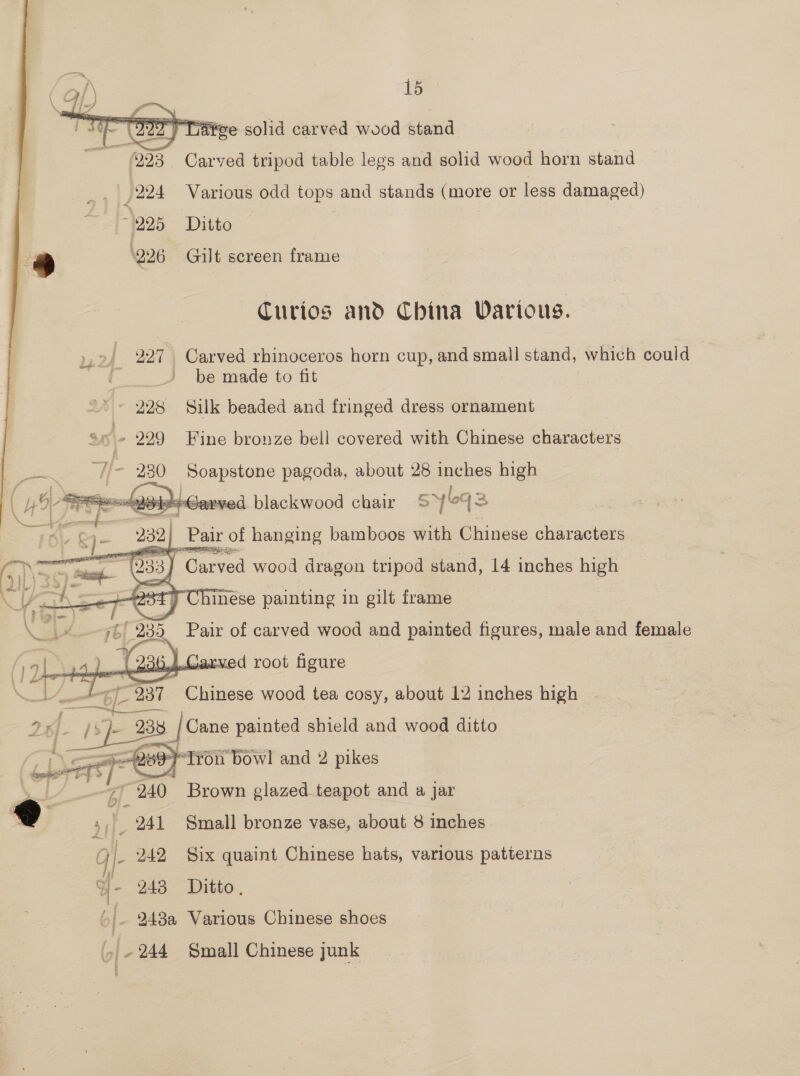 15
222 Large solid carved wood stand
223 Carved tripod table legs and solid wood horn stand
224 Various odd tops and stands (more or less damaged)
225 Ditto
226 Gilt screen frame
Curios and China Various.
227 Carved rhinoceros horn cup, and small stand, which could
be made to fit
228 Silk beaded and fringed dress ornament
229 Fine bronze bell covered with Chinese characters
7/- 230 Soapstone pagoda, about 28 inches high
231 Carved blackwood chair
232 Pair of hanging bamboos with Chinese characters
233 Carved wood dragon tripod stand, 14 inches high
234 Chinese painting in gilt frame
235 Pair of carved wood and painted figures, male and female
236 Carved root figure
237 Chinese wood tea cosy, about 12 inches high
238 Cane painted shield and wood ditto
239 Iron bowl and 2 pikes
240 Brown glazed teapot and a jar
241 Small bronze vase, about 8 inches
242 Six quaint Chinese hats, various patterns
243 Ditto.
243a Various Chinese shoes
244 Small Chinese junk